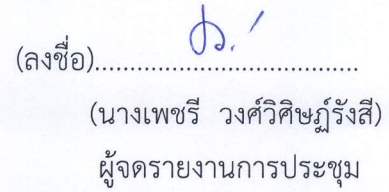 (ลงชื่อ)....................................
(นางเพชรี วงศ์วิศิษฏ์รังสี)
ผู้จดรายงานการประชุม